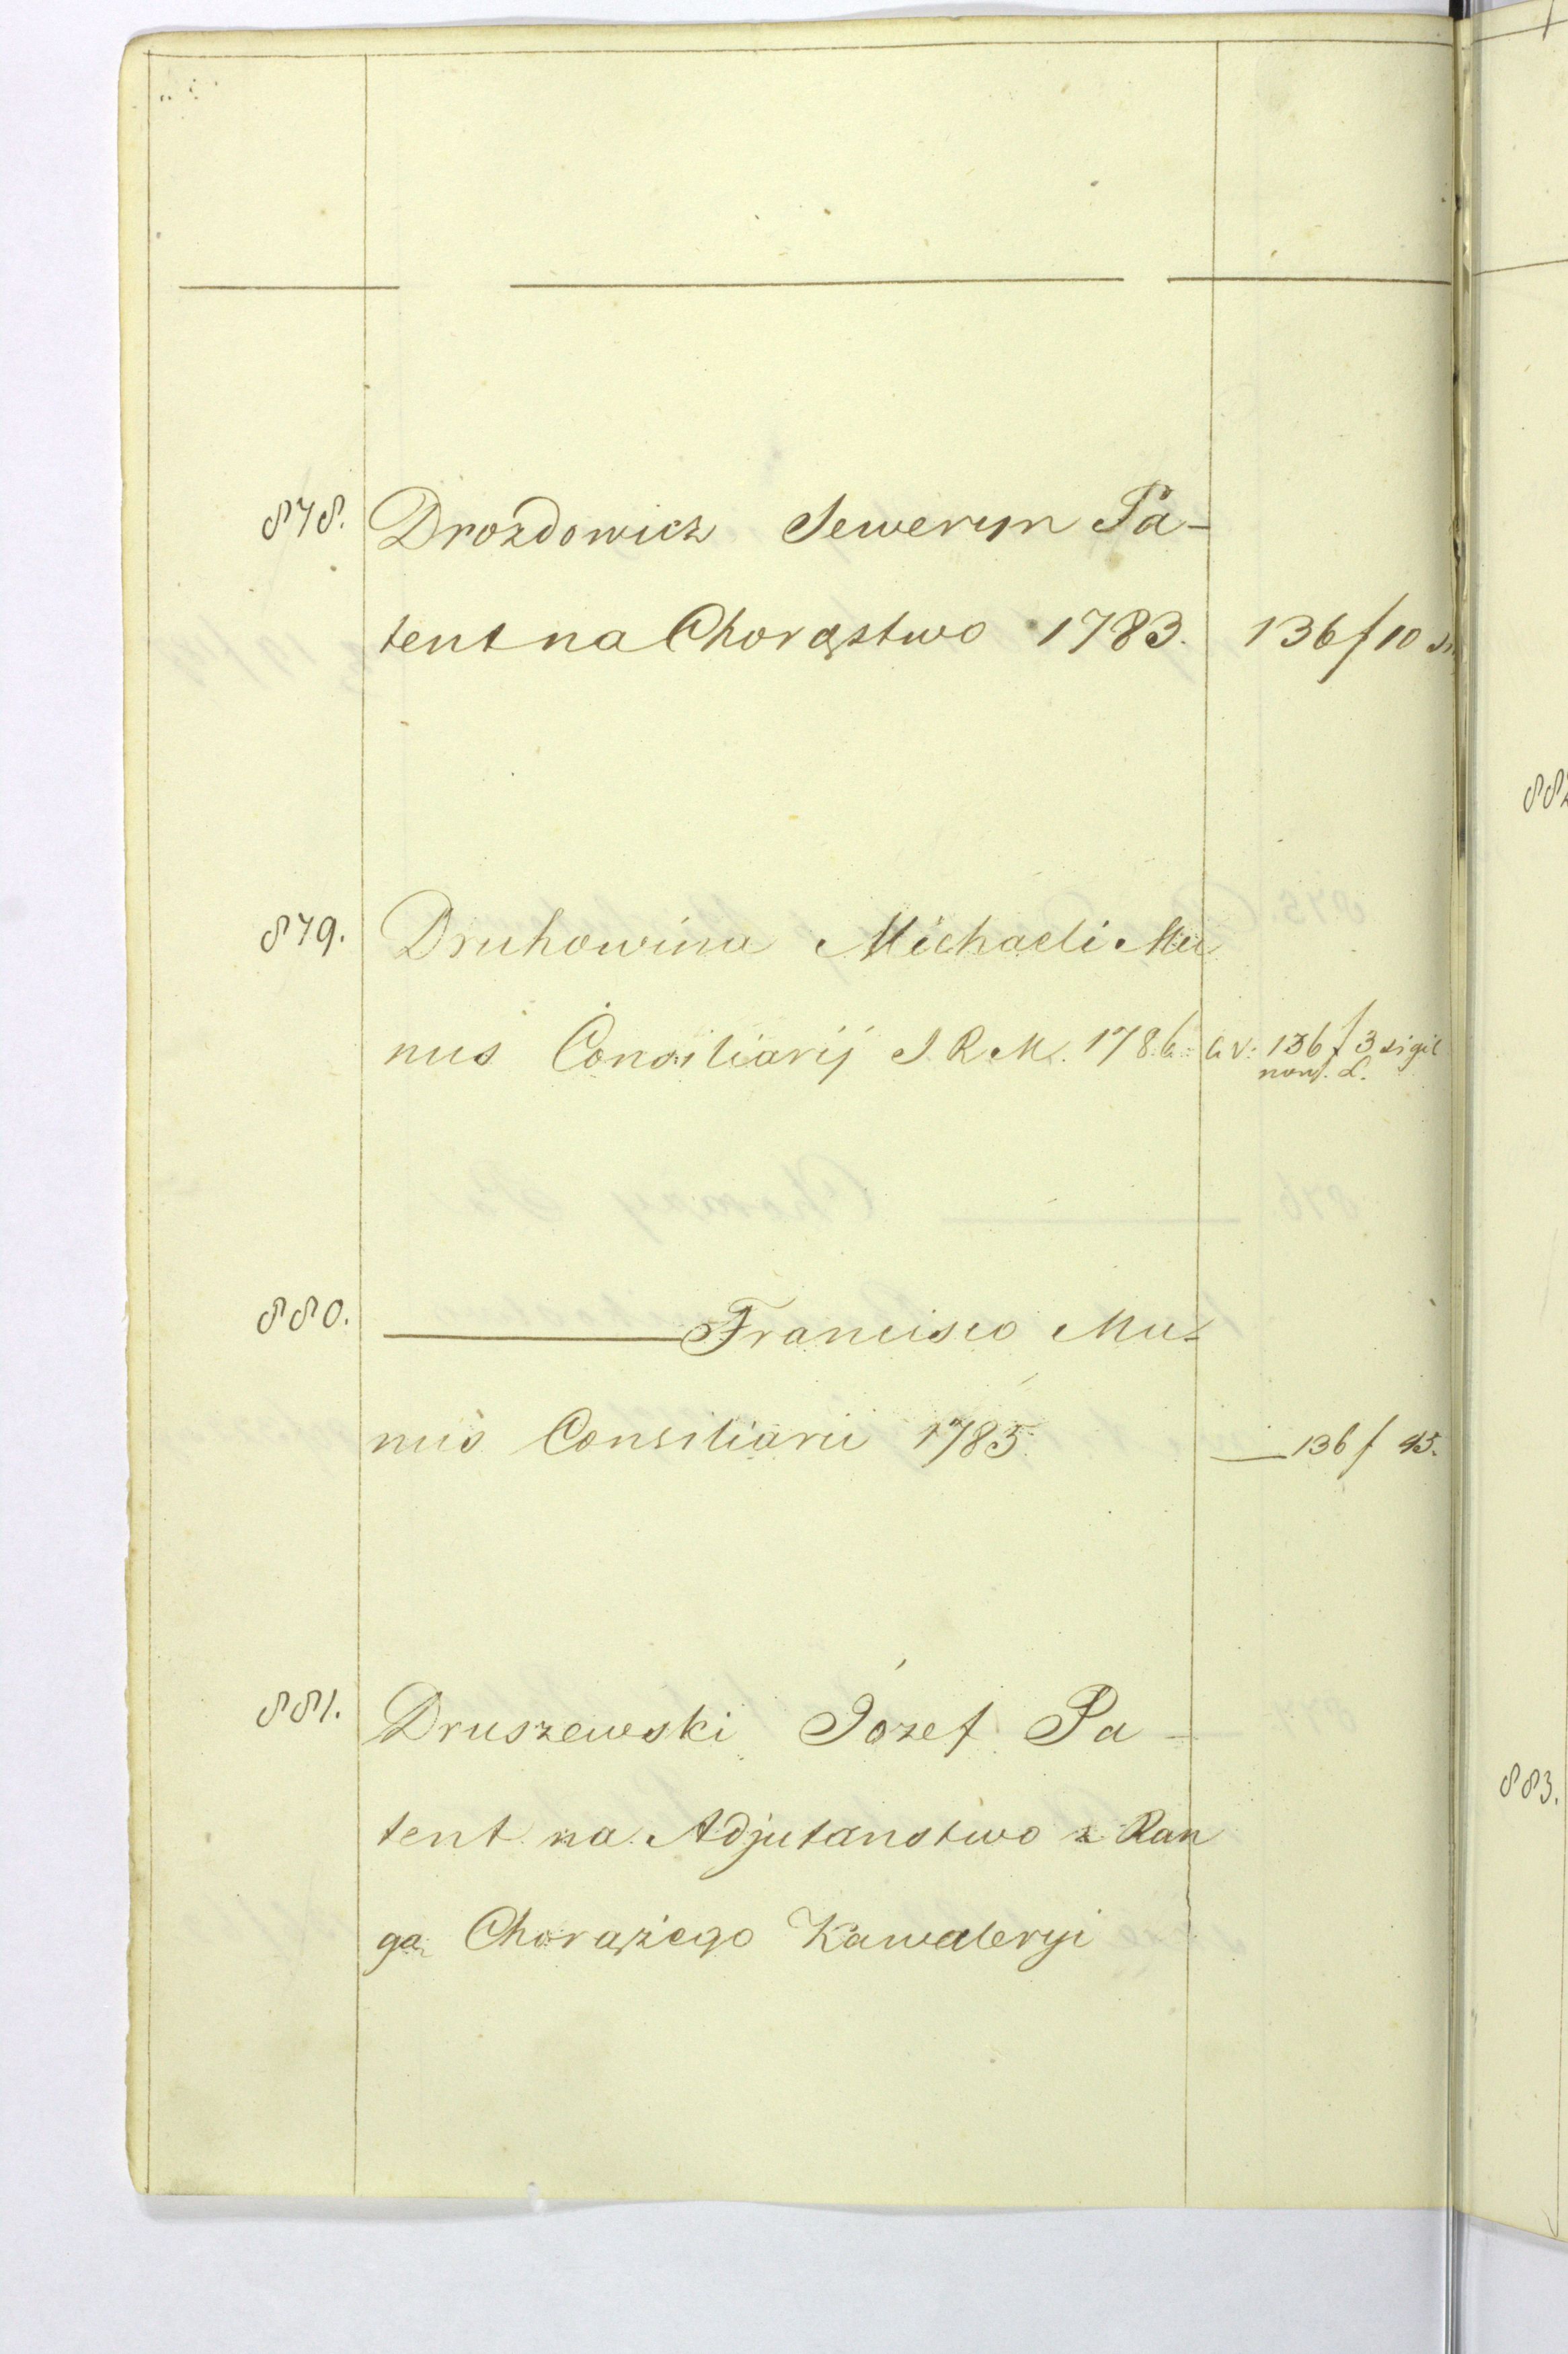 878. Drozdowicz Seweryn Pa-
tent na Chorąstwo 1783. 136 f 10
879. Druhowina Michaeli Mu
nus Consiliarij S. R. M. 1786. 136 f 3 sigil
880. ——— Francisco Mu-
nus Consiliarii 1785. — 136 f 45.
881. Druszewski Józef Pa-
tent na Adjutanstwo z Ran
gą Chorążego Kawaleryi
883.